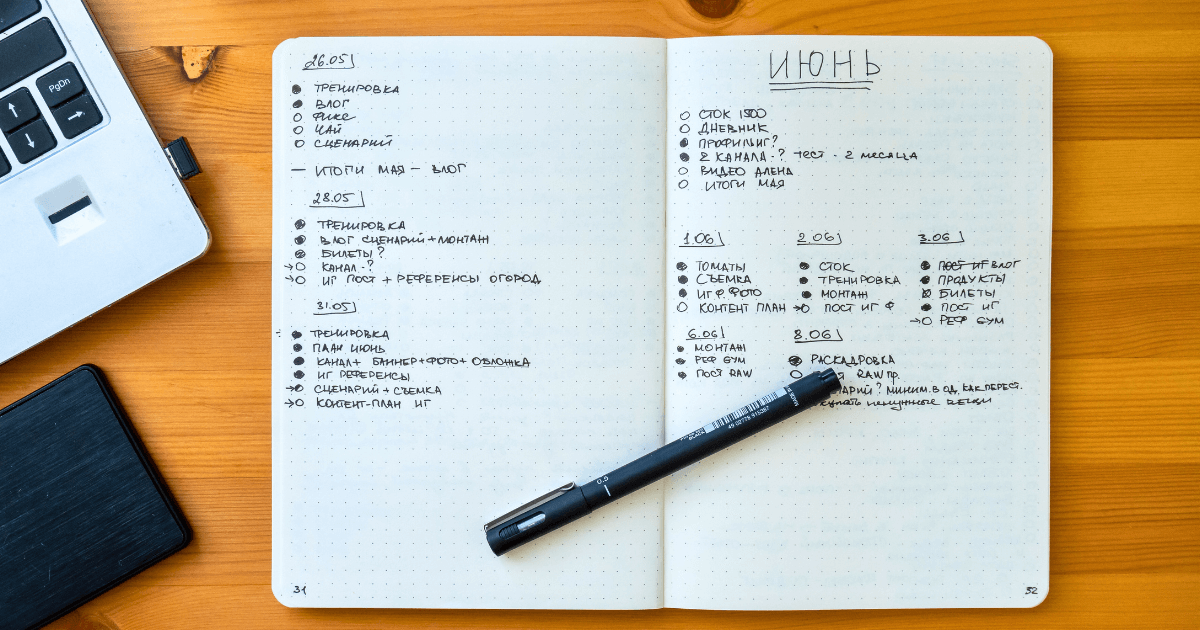 PgDn
26.05
● ТРЕНИРОВКА
● ВЛОГ
○ ФИКС
○ ЧАЙ
○ СЦЕНАРИЙ
— ИТОГИ МАЯ — ВЛОГ
28.05
● ТРЕНИРОВКА
● ВЛОГ СЦЕНАРИЙ + МОНТАЖ
● БИЛЕТЫ?
→○ КАНАЛ - ?
→○ ИГ ПОСТ + РЕФЕРЕНСЫ ОГОРОД
31.05
● ТРЕНИРОВКА
● ПЛАН ИЮНЬ
● КАНАЛ + БАННЕР + ФОТО + ОБЛОЖКА
● ИГ РЕФЕРЕНСЫ
→○ СЦЕНАРИЙ + СЪЕМКА
→○ КОНТЕНТ-ПЛАН ИГ
31
ИЮНЬ
○ СТОК 1500
○ ДНЕВНИК
● ПРОФИЛЬ ИГ?
● 2 КАНАЛА - ? ТЕСТ - 2 МЕСЯЦА
○ ВИДЕО АЛЕНА
○ ИТОГИ МАЯ
1.06
● ТОМАТЫ
● СЪЕМКА
● ИГ Ф. ФОТО
○ КОНТЕНТ ПЛАН
2.06
● СТОК
● ТРЕНИРОВКА
● МОНТАЖ
→○ ПОСТ ИГ Ф
3.06
● ПОСТ ИГ ВЛОГ
● ПРОДУКТЫ
⊗ БИЛЕТЫ
● ПОСТ ИГ
→○ РЕФ GYM
6.06
● МОНТАЖ
● РЕФ GYM
● ПОСТ RAW
8.06
● РАСКАДРОВКА
○ RAW ПР.
? МИНИМ. В ОД. КАК ПЕРЕСТ.
ненужные вещи
32